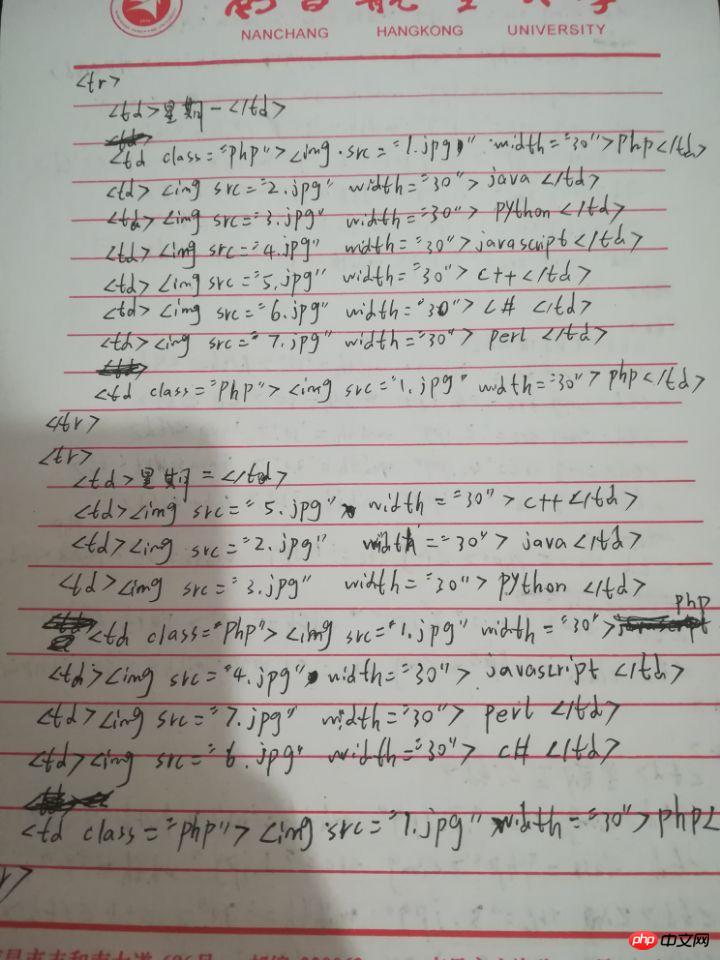 NANCHANG HANGKONG UNIVERSITY
<tr>
<td>星期一</td>
<td class="php"><img src="1.jpg" width="30">php</td>
<td><img src="2.jpg" width="30">java</td>
<td><img src="3.jpg" width="30">python</td>
<td><img src="4.jpg" width="30">javascript</td>
<td><img src="5.jpg" width="30">c++</td>
<td><img src="6.jpg" width="30">c#</td>
<td><img src="7.jpg" width="30">perl</td>
<td class="php"><img src="1.jpg" width="30">php</td>
</tr>
<tr>
<td>星期二</td>
<td><img src="5.jpg" width="30">c++</td>
<td><img src="2.jpg" width="30">java</td>
<td><img src="3.jpg" width="30">python</td>
<td class="php"><img src="1.jpg" width="30">php
<td><img src="4.jpg" width="30">javascript</td>
<td><img src="7.jpg" width="30">perl</td>
<td><img src="6.jpg" width="30">c#</td>
<td class="php"><img src="1.jpg" width="30">php<
r>
php 中文网